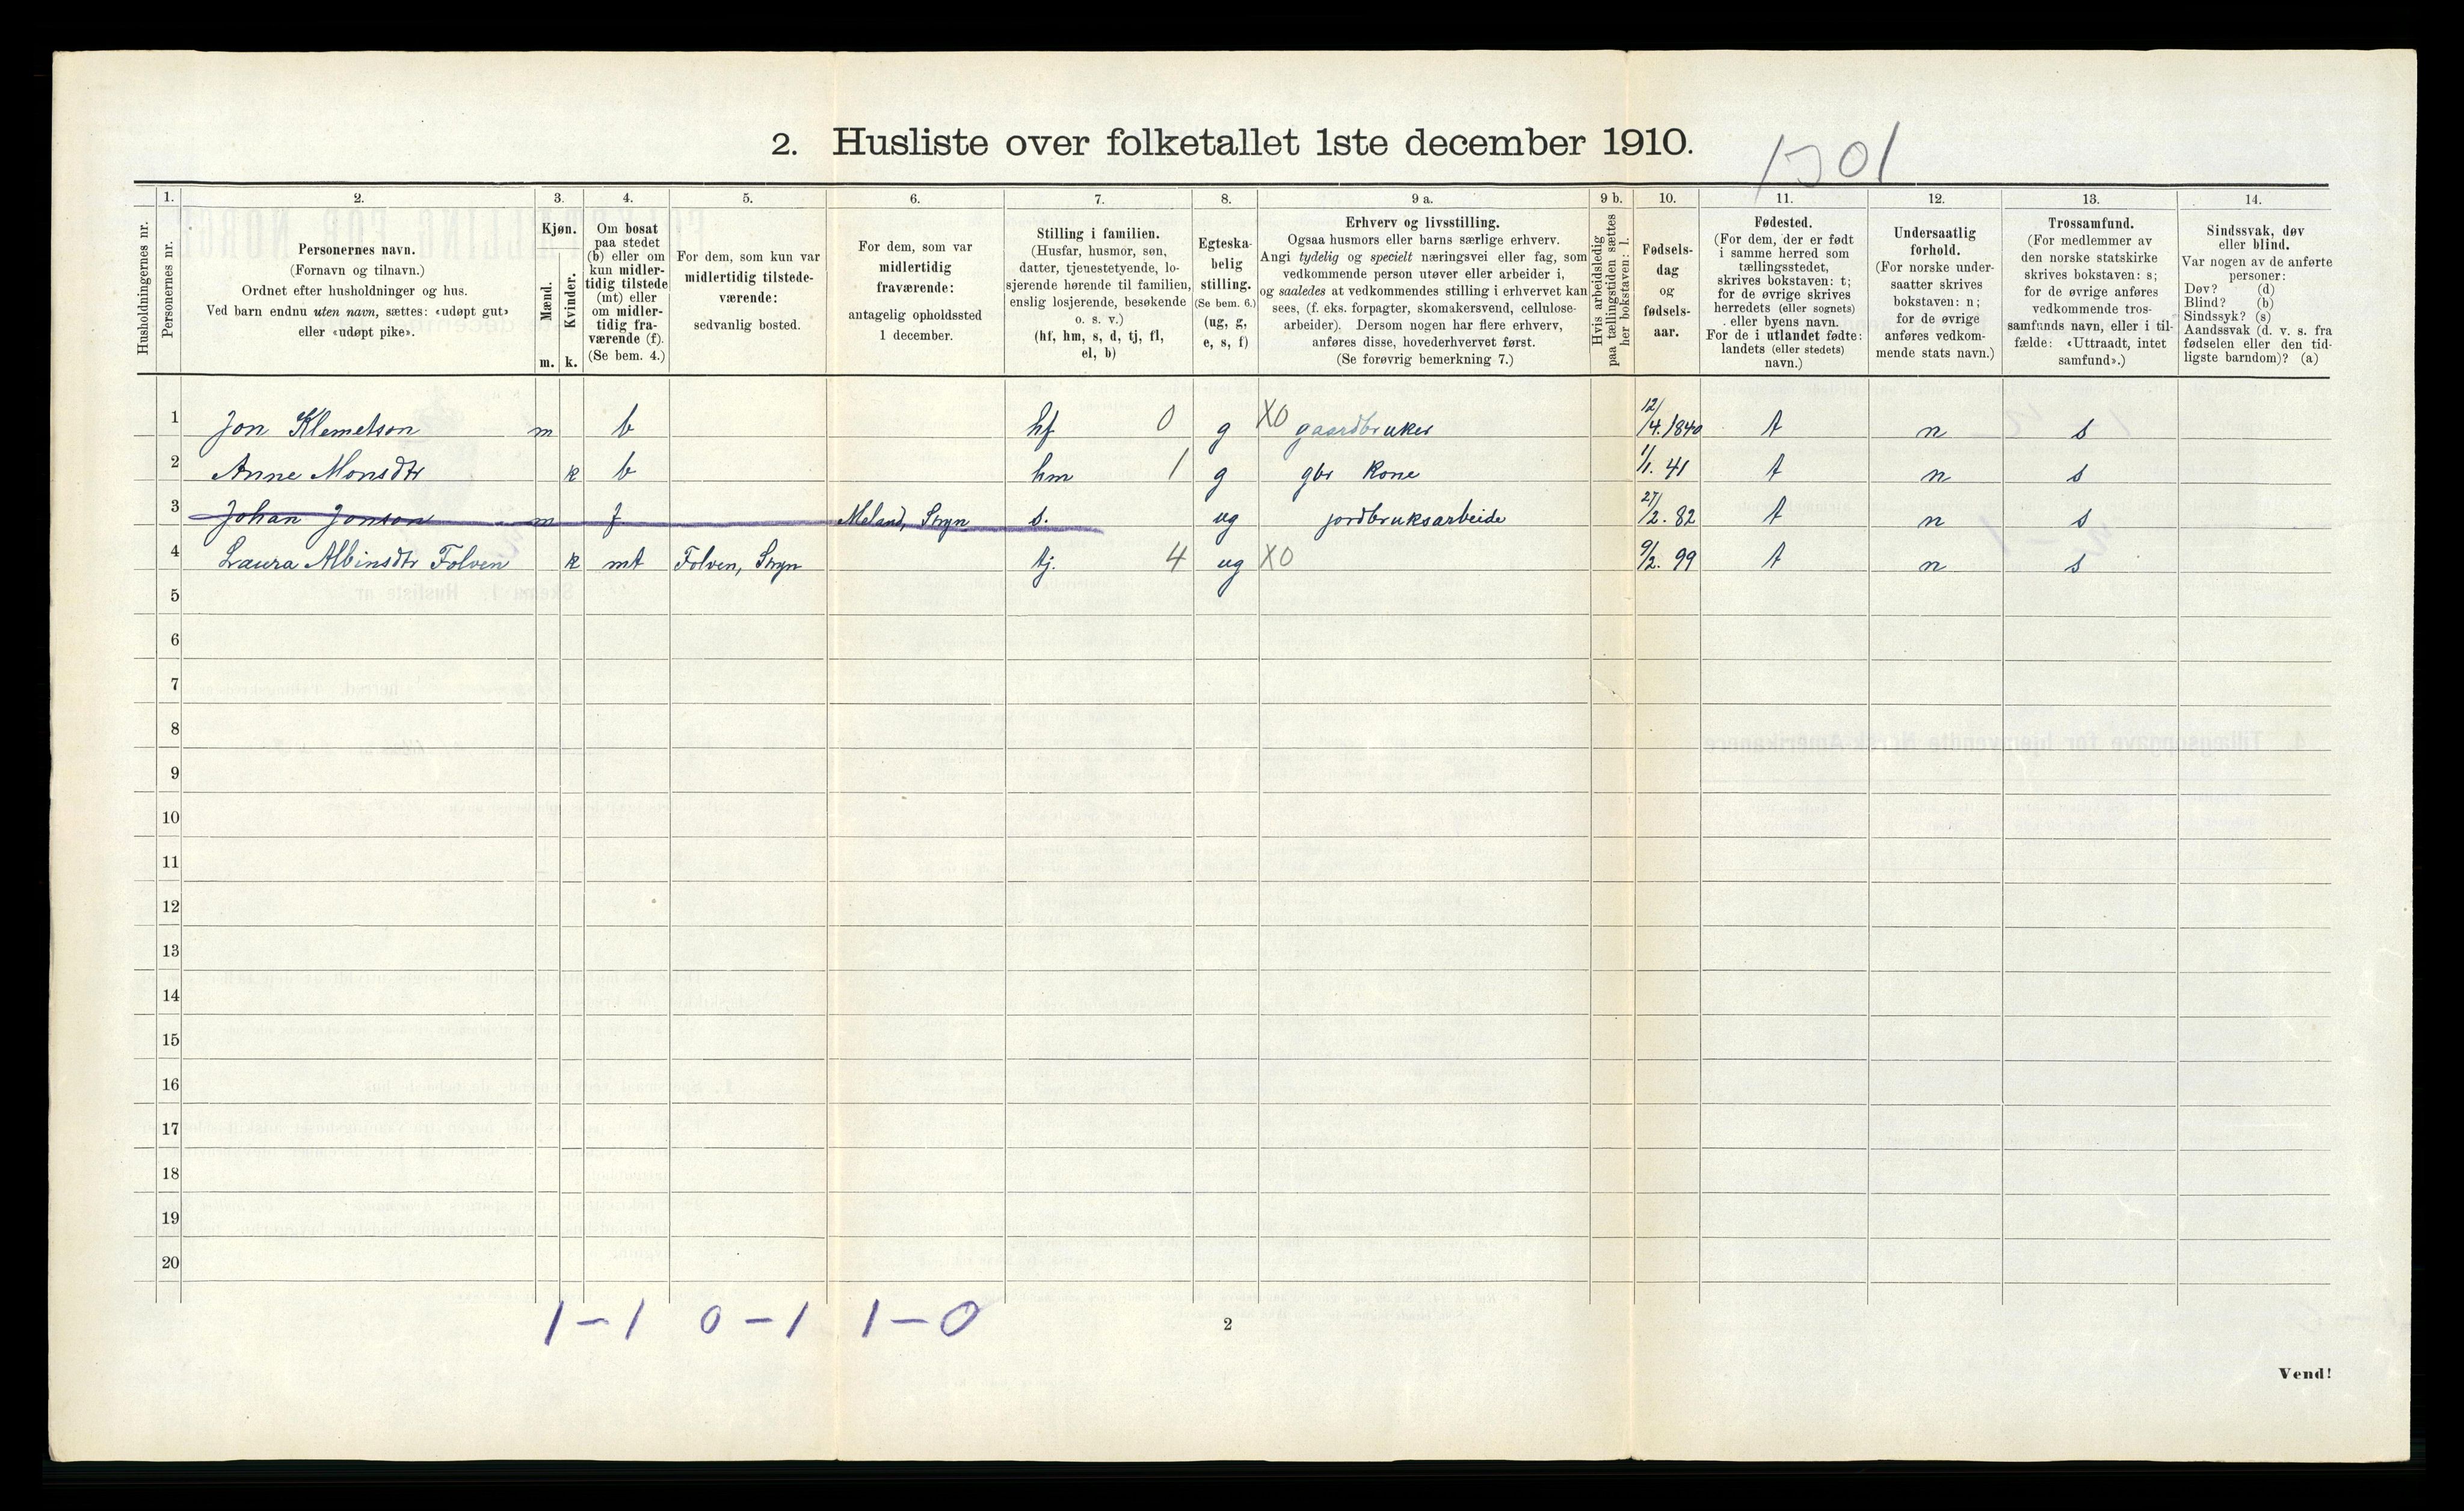 2. Husliste over folketallet 1ste december 1910.
1301
Husholdningernes nr.
1.
Personernes nr.
2.
Personernes navn.
(Fornavn og tilnavn.)
Ordnet efter husholdninger og hus.
Ved barn endnu uten navn, sættes: «udøpt gut»
eller «udøpt pike».
3.
Kjøn.
Mænd.
Kvinder.
m. k.
4.
Om bosat
paa stedet
(b) eller om
kun midler-
tidig tilstede
(mt) eller
om midler-
tidig fra-
værende (f).
(Se bem. 4.)
5.
For dem, som kun var
midlertidig tilstede-
værende:
sedvanlig bosted.
6.
For dem, som var
midlertidig
fraværende:
antagelig opholdssted
1 december.
7.
Stilling i familien.
(Husfar, husmor, søn,
datter, tjenestetyende, lo-
sjerende hørende til familien,
enslig losjerende, besøkende
o. s. v.)
(hf, hm, s, d, tj, fl,
el, b)
8.
Egteska-
belig
stilling.
(Se bem. 6.)
(ug, g,
e, s, f)
9 a.
Erhverv og livsstilling.
Ogsaa husmors eller barns særlige erhverv.
Angi tydelig og specielt næringsvei eller fag, som
vedkommende person utøver eller arbeider i,
og saaledes at vedkommendes stilling i erhvervet kan
sees, (f. eks. forpagter, skomakersvend, cellulose-
arbeider). Dersom nogen har flere erhverv,
anføres disse, hovederhvervet først.
(Se forøvrig bemerkning 7.)
9 b.
Hvis arbeidsledig
paa tællingstiden sættes
her bokstaven: l.
10.
Fødsels-
dag
og
fødsels-
aar.
11.
Fødested.
(For dem, der er født
i samme herred som
tællingsstedet,
skrives bokstaven: t;
for de øvrige skrives
herredets (eller sognets)
eller byens navn.
For de i utlandet fødte:
landets (eller stedets)
navn.)
12.
Undersaatlig
forhold.
(For norske under-
saatter skrives
bokstaven: n;
for de øvrige
anføres vedkom-
mende stats navn.)
13.
Trossamfund.
(For medlemmer av
den norske statskirke
skrives bokstaven: s;
for de øvrige anføres
vedkommende tros-
samfunds navn, eller i til-
fælde: «Uttraadt, intet
samfund».)
14.
Sindssvak, døv
eller blind.
Var nogen av de anførte
personer:
Døv? (d)
Blind? (b)
Sindssyk? (s)
Aandssvak (d. v. s. fra
fødselen eller den tid-
ligste barndom)? (a)
1 Jon Klemetson m b hf 0 g X0 gaardbruker 12/4. 1840 t n s
2 Anne Monsdtr k b hm 1 g gbr Kone 1/1. 41 t n s
3 Johan Jonson m f Meland, Stryn s. ug jordbruksarbeide 27/2. 82 t n s
4 Laura Albinsdtr Folven k mt Folven, Stryn tj. 4 ug X0 9/2. 99 t n s
5
6
7
8
9
10
11
12
13
14
15
16
17
18
19
20
1-1 0-1 1-0
2
Vend!